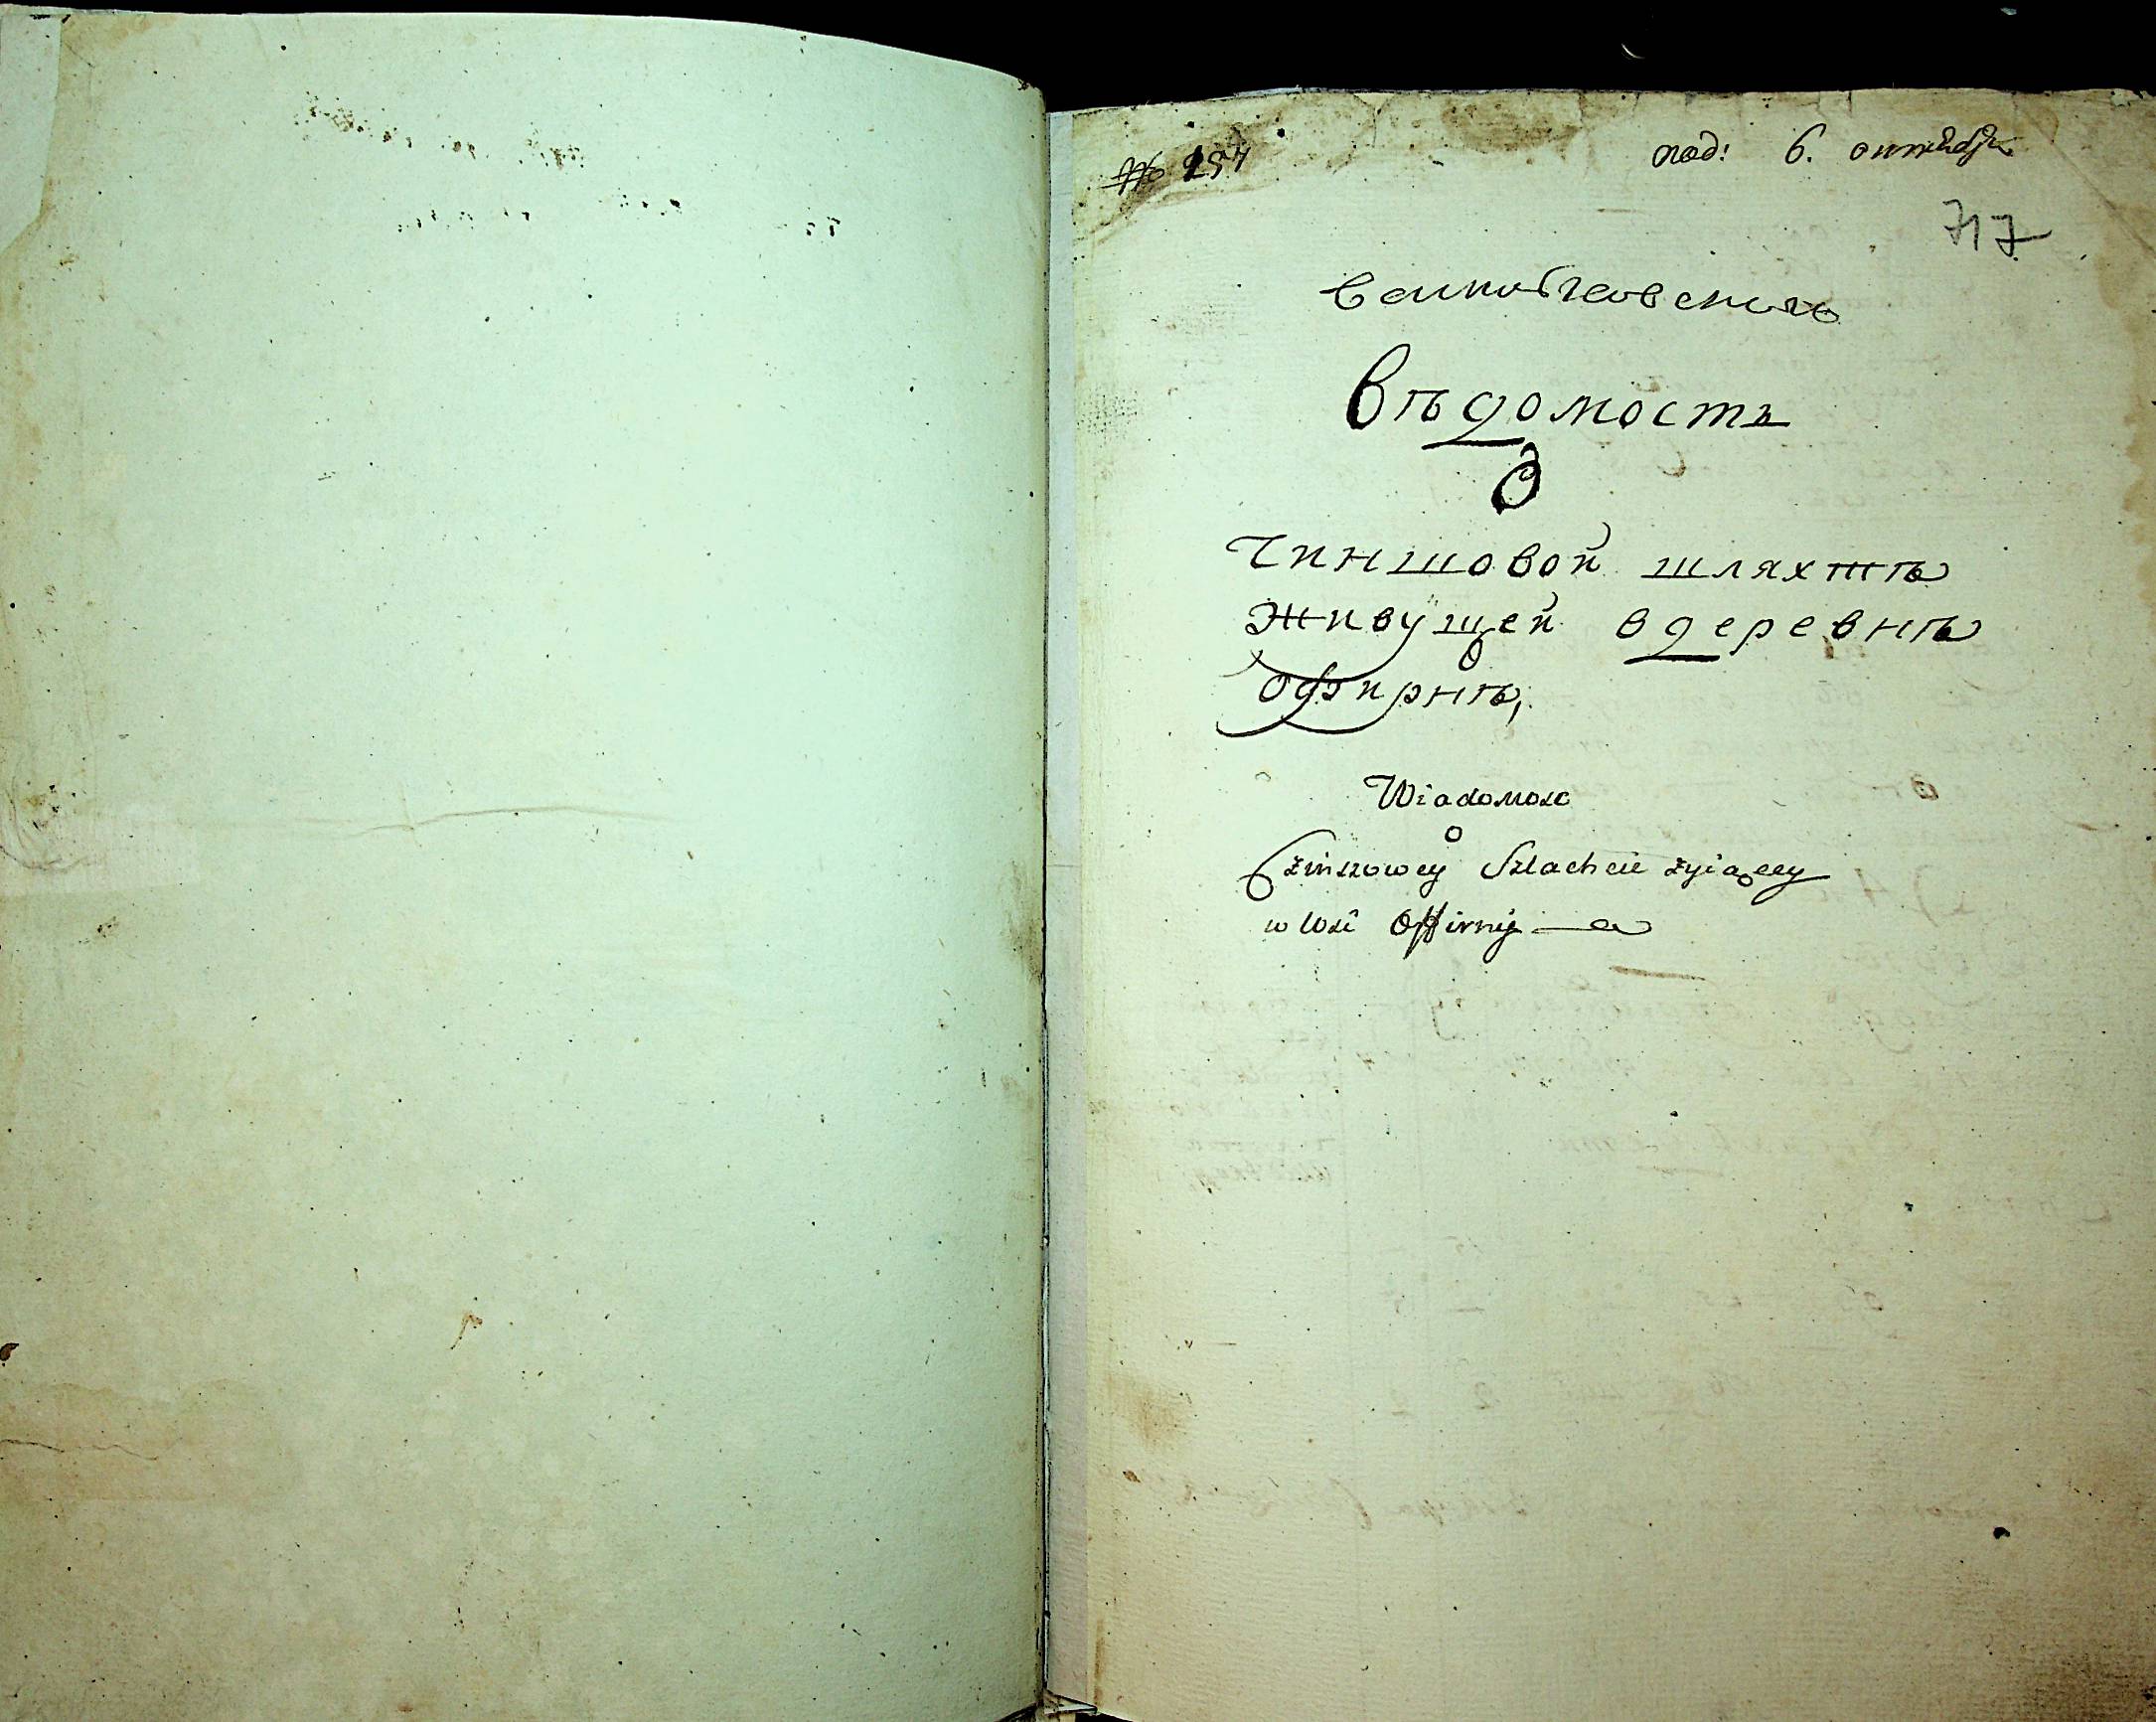 № 254
под: 6. октября
717
Вѣдомость
О
Чиншовой шляхтѣ
живущей вдеревнѣ
Офирнѣ,
Wiadomosc
o
Czinszowey Szlachcie żyiącey
w Wsi Offirnÿ